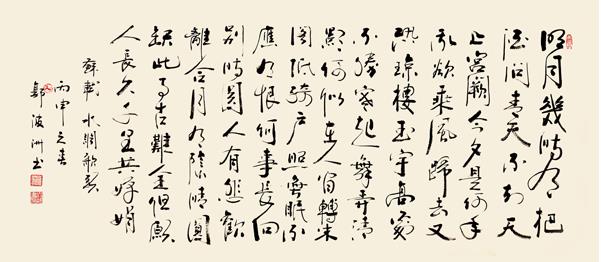 明月幾時有把
酒问青天不知天
上宫阙今夕是何年
我欲乘風歸去又
恐瓊樓玉宇高處
不勝寒起舞弄清
影何似在人间轉朱
阁低绮户照無眠不
應有恨何事長向
别時圆人有悲歡
離合月有陰晴圓
缺此事古難全但願
人長久千里共嬋娟
蘇軾水調歌頭
丙申之春
波洲书